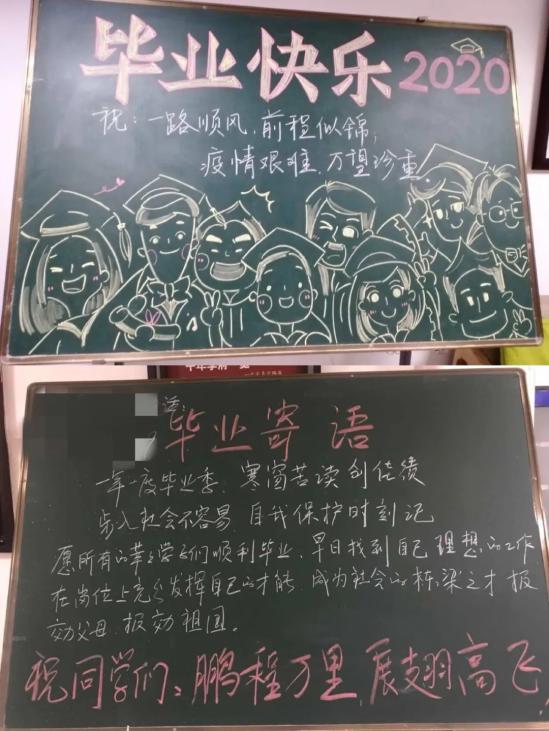 毕业快乐2020
祝:一路顺风,前程似锦,
疫情艰难,万望珍重.
毕业寄语
一年一度毕业季,寒窗苦读创佳绩
步入社会不容易,自我保护时刻记
愿所有的莘莘学子们顺利毕业,早日找到自己理想的工作
在岗位上充分发挥自己的才能,成为社会的栋梁之才报
効父母,报効祖国。
祝同学们:鹏程万里,展翅高飞!